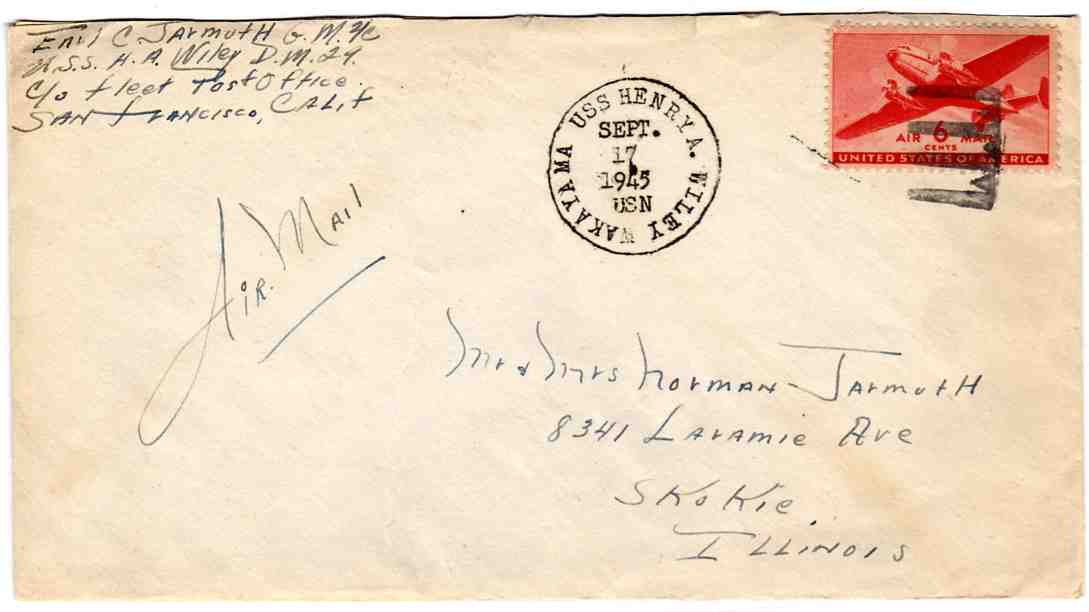 Emil C Jarmuth G.M. 3/c
U.S.S. H.A. Wiley D.M. 29.
C/o Fleet Post Office.
San Francisco, Calif
USS HENRY A. WILEY WAKAYAMA
SEPT.
17
1945
USN
AIR 6 MAIL
CENTS
UNITED STATES OF AMERICA
Air. Mail
Mr & Mrs Norman Jarmuth
8341 Laramie Ave
Skokie,
Illinois